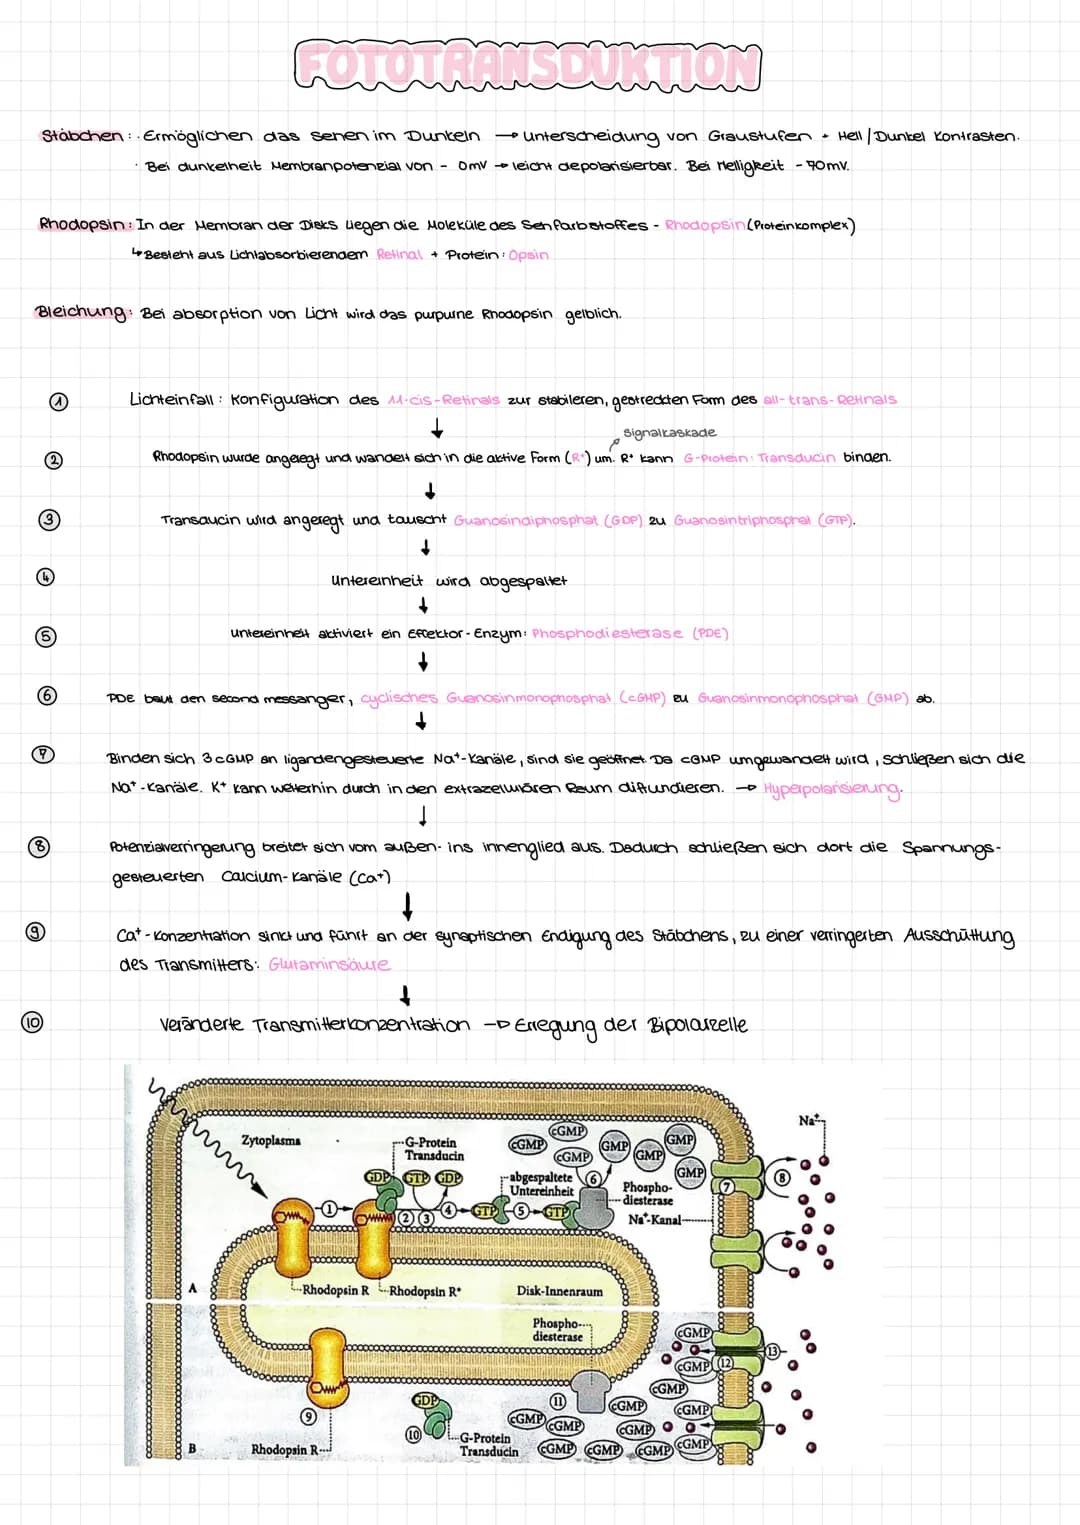 FOTOTRANSDUKTION
Stäbchen: · Ermöglichen das sehen im Dunkeln → unterscheidung von Graustufen + Hell/Dunkel Kontrasten.
· Bei dunkelheit Membranpotenzial von - 0mV → leicht depolarisierbar. Bei Helligkeit - 70mV.
Rhodopsin: In der Membran der Disks liegen die Moleküle des Sehfarbstoffes - Rhodopsin (Proteinkomplex)
↳ Besteht aus Lichtabsorbierendem Retinal + Protein: Opsin
Bleichung: Bei absorption von Licht wird das purpurne Rhodopsin gelblich.
① Lichteinfall: Konfiguration des 11-cis-Retinals zur stabileren, gestreckten Form des all-trans-Retinals
↓
Signalkaskade
② Rhodopsin wurde angeregt und wandelt sich in die aktive Form (R*) um. R* kann G-Protein: Transducin binden.
↓
③ Transducin wird angeregt und tauscht Guanosindiphosphat (GDP) zu Guanosintriphosphat (GTP).
↓
④ Untereinheit wird abgespaltet
↓
⑤ untereinheit aktiviert ein Effektor-Enzym: Phosphodiesterase (PDE)
↓
⑥ PDE baut den second messanger, cyclisches Guanosinmonophosphat (cGMP) zu Guanosinmonophosphat (GMP) ab.
↓
⑦ Binden sich 3 cGMP an ligandengesteuerte Na⁺-Kanäle, sind sie geöffnet. Da cGMP umgewandelt wird, schließen sich die
Na⁺-Kanäle. K⁺ kann weiterhin durch in den extrazellulären Raum difundieren. → Hyperpolarisierung.
↓
⑧ Potenzialverringerung breitet sich vom außen- ins innenglied aus. Dadurch schließen sich dort die Spannungs-
gesteuerten Calcium-Kanäle (Ca⁺)
↓
⑨ Ca⁺-Konzentration sinkt und führt an der synaptischen Endigung des Stäbchens, zu einer verringerten Ausschüttung
des Transmitters: Glutaminsäure
↓
⑩ Veränderte Transmitterkonzentration → Erregung der Bipolarzelle
Na⁺
Zytoplasma
G-Protein
Transducin
cGMP
cGMP
cGMP
GMP
GMP
GMP
GMP
GDP GTP GDP
abgespaltete
Untereinheit
⑥
Phospho-
diesterase
Na⁺-Kanal
⑦ ⑧
① ② ③ ④ GTP ⑤ GTP
A
Rhodopsin R
Rhodopsin R*
Disk-Innenraum
Phospho-
diesterase
cGMP
cGMP ⑫ ⑬
cGMP
GDP
⑪
cGMP
cGMP
⑨
⑩
cGMP
cGMP
cGMP
B
Rhodopsin R
G-Protein
Transducin
cGMP cGMP cGMP cGMP